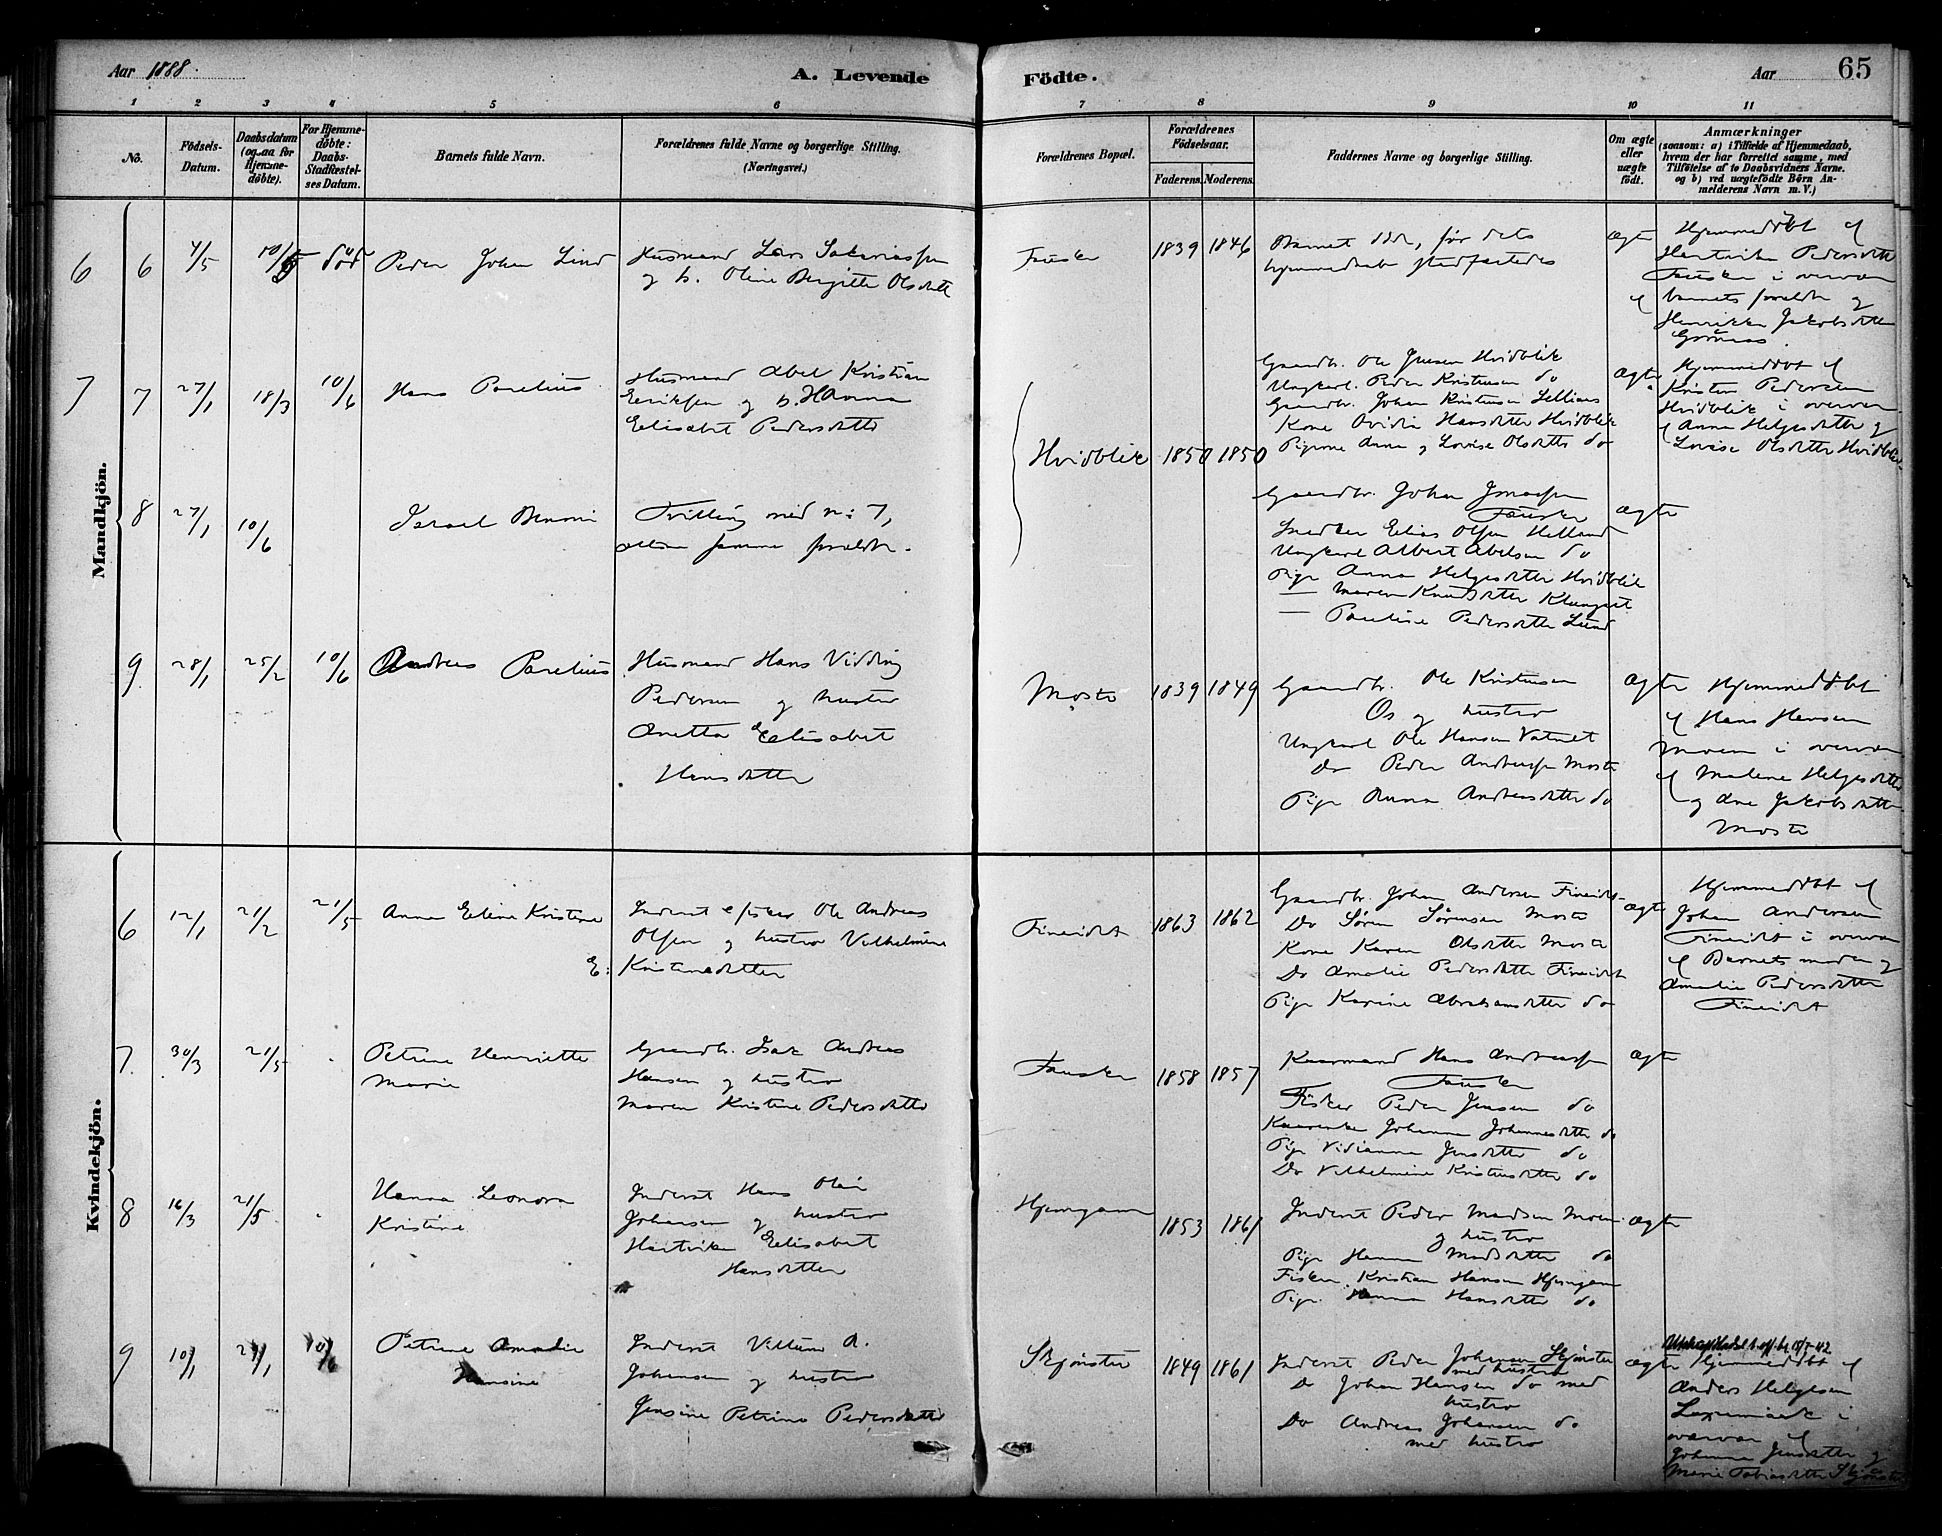 Aar 1888.
A. Levende
Födte.
Aar
65
1 2 3 4 5 6 7 8 9 10 11
No.
Födsels-
Datum.
Daabsdatum
(ogsaa for
Hjemme-
döbte).
For Hjemme-
döbte:
Daabs-
Stadfæstel-
ses Datum.
Barnets fulde Navn.
Forældrenes fulde Navne og borgerlige Stilling.
(Næringsvei.)
Forældrenes Bopæl.
Forældrenes
Födselsaar.
Faderens. Moderens.
Faddernes Navne og borgerlige Stilling.
Om ægte
eller
uægte
födt.
Anmærkninger
(saasom: a) i Tilfælde af Hjemmedaab,
hvem der har forrettet samme, med
Tilföielse af to Daabsvidners Navne.
og b) ved uægtefödte Börn An-
melderens Navn m. V.)
Mandkjön.
6 6 4/5 død Peder Johan Lind
Husmand Lars Sakariassen
og h. Oline Birgitte Olsdatt
Fauske 1839 1846
Barnet død, før dets
hjemmedaab stadfæstedes
ægte
Hjemmedøbt af
Hentrikke Pedersdtt
Fauske i overvær
af barnets forældr og
Henrikke Jakobsdtter
7 7 27/1 18/3 10/6 Hans Parelius
Husmand Abel Kristian
Eriksen og h. Hanna
Elisabet Pedersdatter
Hvidblik 1850 1850
Gaardbr. Ole Jensen Hvidblik
Ungkarl. Peder Kristensen do
Gaardbr. Johan Kristensen
Kone Ovidia Hansdtter Hvidblik
Pigerne Anna og Lovise Olsdtter do
ægte
Hjemmedøbt af
Kristen Pedersen
Hvidblik i overvær
af Anne Helgesdtter og
Lovise Olsdtter Hvidblik
8 27/1 10/6 Israel Benoni
Tvilling med n: 7,
altsaa samme forældr.
Gaardbr. Johan
Fauske
Snedker Elias Olsen Helland
Ungkarl Albert Abelsen do
Pige Anna Helgesdtter Hvidblik
— Maren Knudsdtter Klungset
— Pauline Pedersdtter Lund
ægte
9 28/1 25/2 10/6 Andreas Parelius
Husmand Hans Vidding
Pedersen og hustro
Anetta Elisabet
Hansdatter
Moste 1839 1849
Gaardbr. Ole Kristensen
Os og hustro
Ungkarl Ole Hansen Vatnet
Do Peder Andreassen Moste
Pige Anna Andreasdtter do
ægte
Hjemmedøbt
af Hans Hansen
Moen i overvær
af Malene Helgesdtter
og Ane Jakobsdtter
Moste
Kvindekjön.
6 12/1 21/2 21/5 Anna Eline Kristine
Inderst & fisker Ole Andreas
Olsen og hustro Vilhelmine
E: Kristensdtter
Fineidet 1863 1862
Gaardbr. Johan Andersen Fineidet
Do Søren Sørensen Moste
Kone Karen Olsdtter Moste
Do Amalie Pedersdtter Fineidet
Pige Karine Abrahamsdtter do
ægte
Hjemmedøbt af
Johan Andersen
Fineidet i overvær
af Barnets moder og
Amalie Pedersdtter
Fineidet
7 30/3 21/5 Petrine Henriette
Marie
Gaardbr. Isak Andreas
Hansen og hustro
Maren Kristine Pedersdatter
Fauske 1858 1857
Kaarmand Hans Andreassen
Fauske
Fisker Peder Jensen do
Kaarenke Johanna Johannesdtter do
Pige Vidianna Jensdtter do
Do Vilhelmine Kristensdtter do
ægte
8 16/3 21/5 Hanna Leonora
Kristine
Inderst Hans Olai
Johansen og hustro
Hartvikke Elisabet
Hansdatter
Hjemgam 1853 1861
Inderst Peder Madsen Moen
og hustro
Pige Hanna Madsdtter do
Fisker Kristian Hansen Hjemgam
Pige Hanna Hansdtter do
ægte
9 10/1 10/6 Petrine Amalie
Hansine
Inderst Villum A.
Johansen og hustro
Jensine Petrine Pedersdatter
Skjønstu 1849 1861
Inderst Peder Johansen Skjønstu
med hustro
Do Johan Hansen do med
hustro
Do Andreas Johansen do
med hustro
ægte
Hjemmedøbt af
Anders Helgesen
i
overvær af
Johanna Jensdtter og
Marie Tobiasdtter Skjønstu